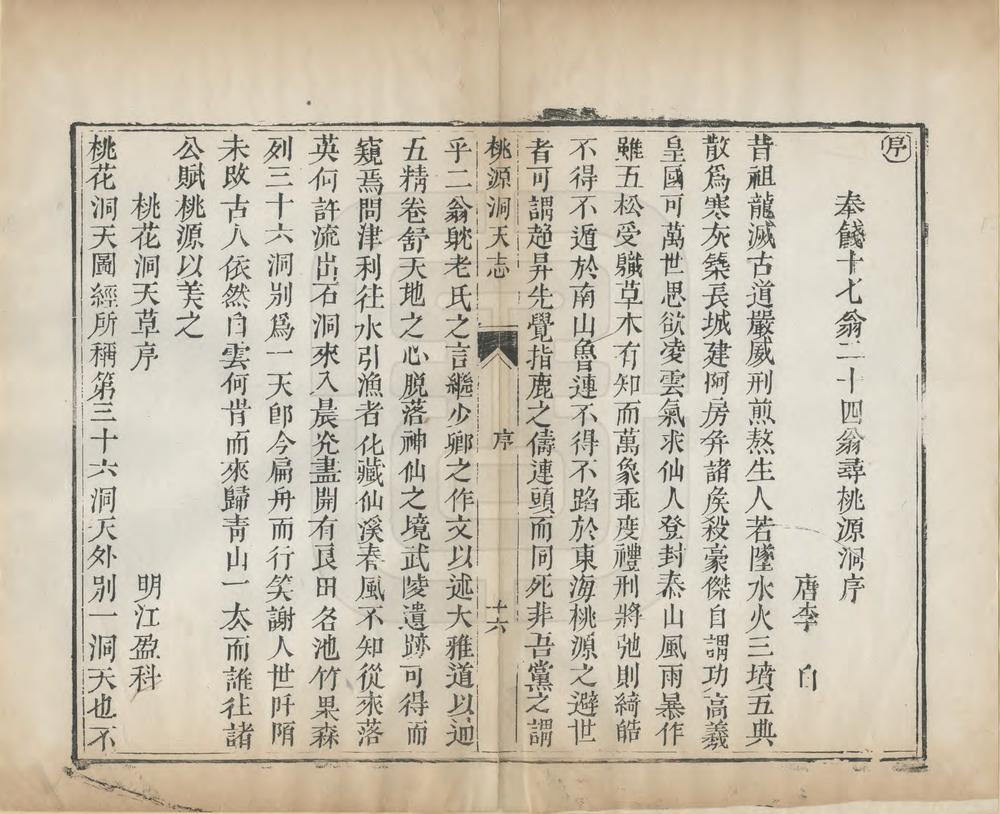 序
奉餞十七翁二十四翁尋桃源洞序
唐李　白
昔祖龍滅古道嚴威刑煎熬生人若墜水火三墳五典
散爲寒灰築長城建阿房弁諸矦殺豪傑自謂功高羲
皇國可萬世思欲凌雲氣求仙人登封泰山風雨暴作
雖五松受職草木有知而萬象乖度禮刑將弛則綺皓
不得不遁於南山魯連不得不蹈於東海桃源之避世
者可謂超昇先覺指鹿之儔連頭而同死非吾黨之謂
桃源洞天志　序　十六
乎二翁耽老氏之言繼少卿之作文以述大雅道以通
五精卷舒天地之心脫落神仙之境武陵遺跡可得而
窺焉問津利往水引漁者花藏仙溪春風不知從來落
英何許流出石洞來入晨光盡開有良田名池竹果森
列三十六洞別爲一天卽今扁舟而行笑謝人世阡陌
未改古人依然白雲何昔而來歸青山一去而誰往諸
公賦桃源以美之
桃花洞天草序
明江盈科
桃花洞天圖經所稱第三十六洞天外別一洞天也不